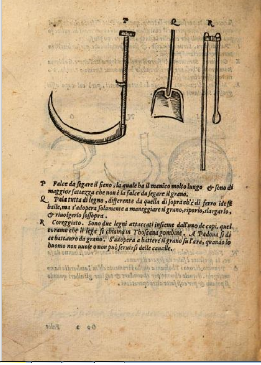 P Q R
P Falce da segare il fieno, la quale ha il manico molto lungo & sono di
maggior fattezza che non è la falce da segare il grano.
Q Pala tutta di legno, differente da quella di sopra ch'è di ferro
ma s'adopera solamente a maneggiare il grano, riporlo, slargarlo,
& rivolgerlo sossopra.
R Coreggiato. Sono due legni attaccati insieme dall'uno de capi, quel
che il lega si chiama in A Padoa si di
da grano. S'adopera a battere il grano su l'ara, quando lo
huomo non vuole o non può servirsi delle cavalle.